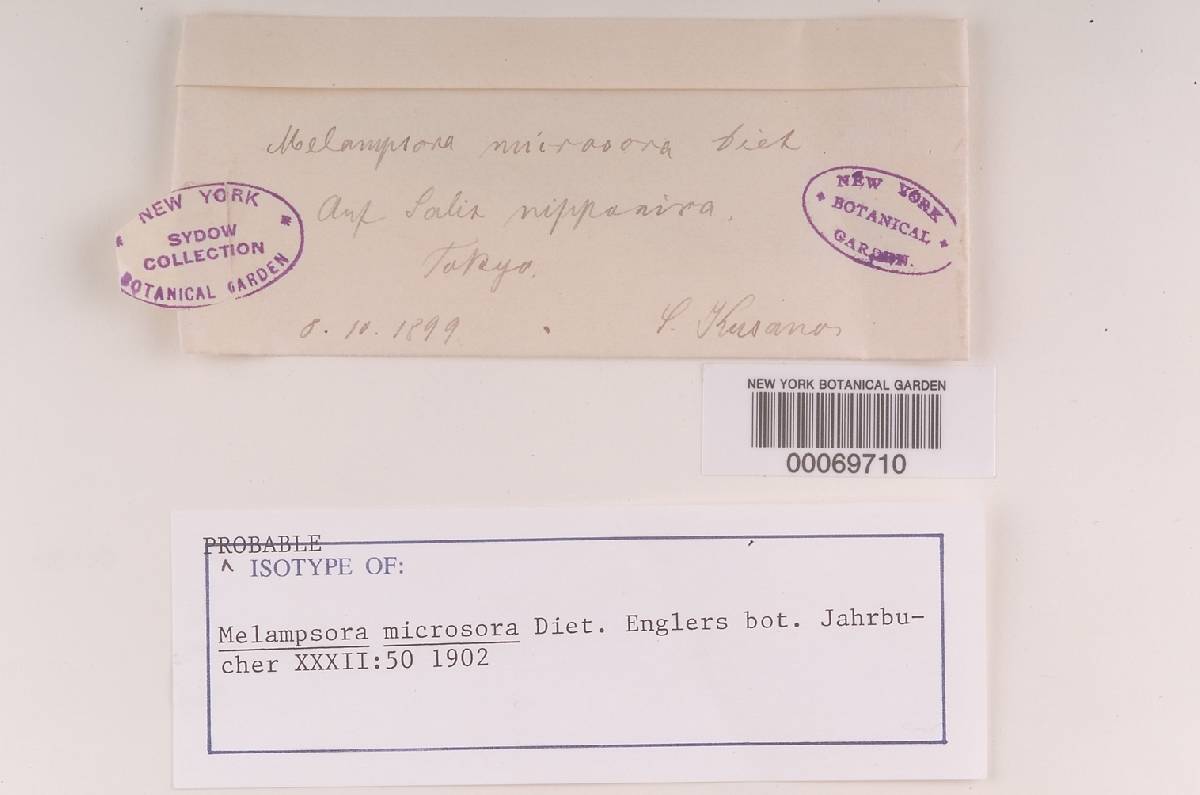 Melampsora microsora Diet
Auf Salix nipponica.
Tokyo.
8. 10. 1899
S. Kusano
NEW YORK
SYDOW
COLLECTION
BOTANICAL GARDEN
NEW YORK
BOTANICAL
GARDEN.
NEW YORK BOTANICAL GARDEN
00069710
PROBABLE
^ ISOTYPE OF:
Melampsora microsora Diet. Englers bot. Jahrbu-
cher XXXII:50 1902